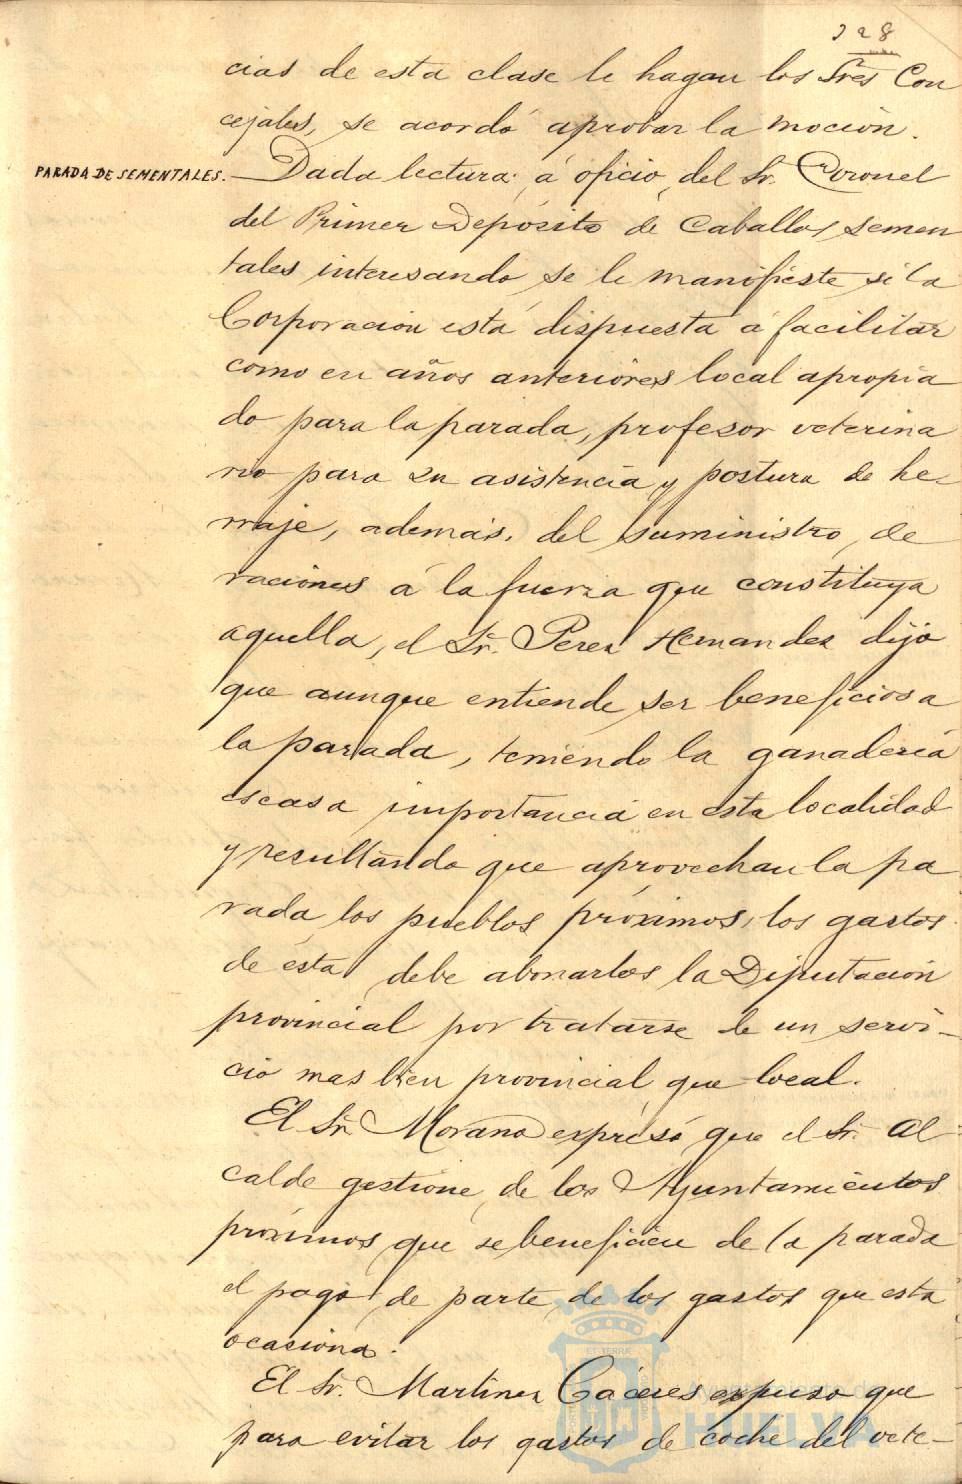 328
cias de esta clase le hagan los Sres Con
cejales, se acordó aprobar la moción.
PARADA DE SEMENTALES.
Dada lectura á oficio del Sr. Coronel
del Primer Depósito de Caballos semen
tales interesando se le manifieste si la
Corporación está dispuesta á facilitar
como en años anteriores local apropia
do para la parada, profesor veterina
rio para su asistencia y postura de he-
rraje, además, del suministro de
raciones á la fuerza que constituya
aquella, el Sr. Perez Hernandez dijo
que aunque entiende ser beneficiosa
la parada, teniendo la ganadería
escasa importancia en esta localidad
y resultando que aprovechan la pa
rada los pueblos próximos, los gastos
de ésta debe abonarlos la Diputación
provincial por tratarse de un servi-
cio mas bien provincial que local.
El Sr. Morano expresó que el Sr. Al
calde gestione de los Ayuntamientos
próximos que se beneficien de la parada
el pago de parte de los gastos que esta
ocasiona.
El Sr. Martinez Cáceres expuso que
para evitar los gastos de coche del vete-
Ayuntamiento de
HUELVA